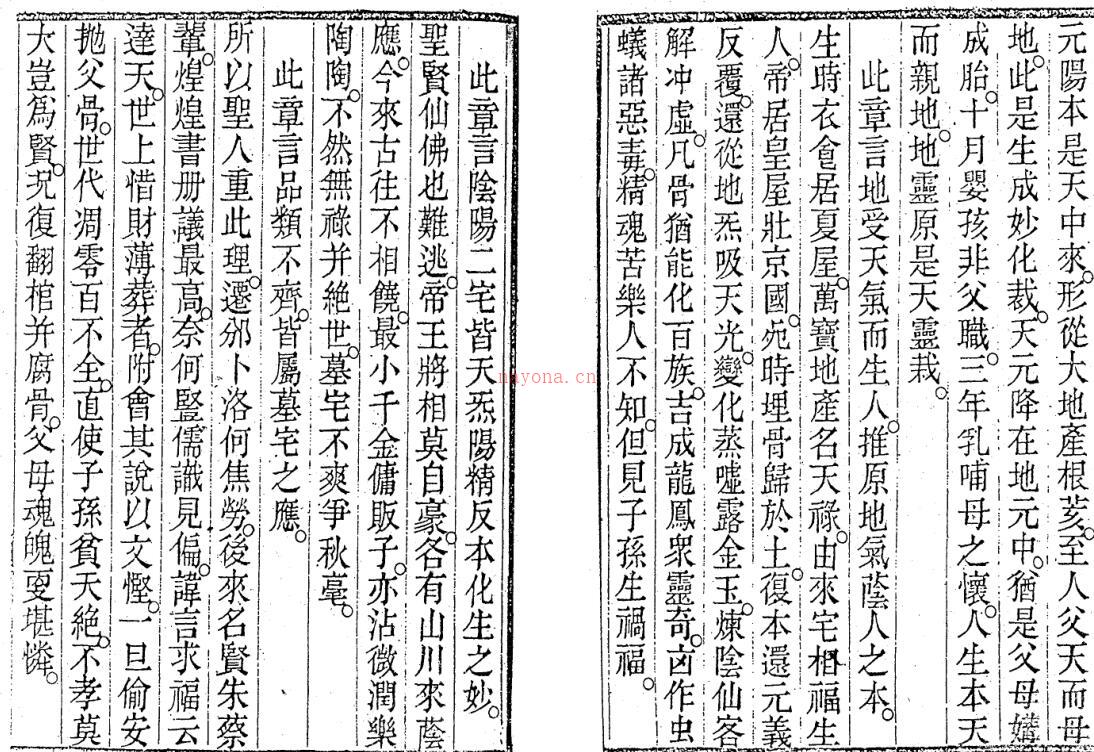 元陽本是天中來。形從大地產根荄。至人父天而母
地。此是生成妙化裁。天元降在地元中。猶是父母媾
成胎。十月嬰孩非父職。三年乳哺母之懷。人生本天
而親地。地靈原是天靈栽。
此章言地受天氣而生人。推原地氣蔭人之本。
生時衣食居夏屋。萬寶地產名天祿。由來宅相福生
人。帝居皇屋壯京國。死時埋骨歸於土。復本還元義
反覆。還從地炁吸天光。變化蒸噓露金玉。煉陰仙客
解冲虛。凡骨猶能化百族。吉成龍鳳衆靈奇。凶作虫
蟻諸惡毒。精魂苦樂人不知。但見子孫生禍福。
此章言陰陽二宅皆天炁陽精反本化生之妙。
聖賢仙佛也難逃。帝王將相莫自豪。各有山川來蔭
應。今來古往不相饒。最小千金傭販子。亦沾微潤樂
陶陶。不然無祿并絶世。墓宅不爽爭秋毫。
此章言品類不齊。皆屬墓宅之應。
所以聖人重此理。遷邠卜洛何焦勞。後來名賢朱蔡
輩。煌煌書册議最高。奈何豎儒識見偏。諱言求福云
達天。世上惜財薄葬者。附會其說以文慳。一旦偷安
抛父骨。世代凋零百不全。直使子孫貧夭絶。不孝莫
大豈爲賢。况復翻棺并腐骨。父母魂魄更堪憐。
nayona.cn